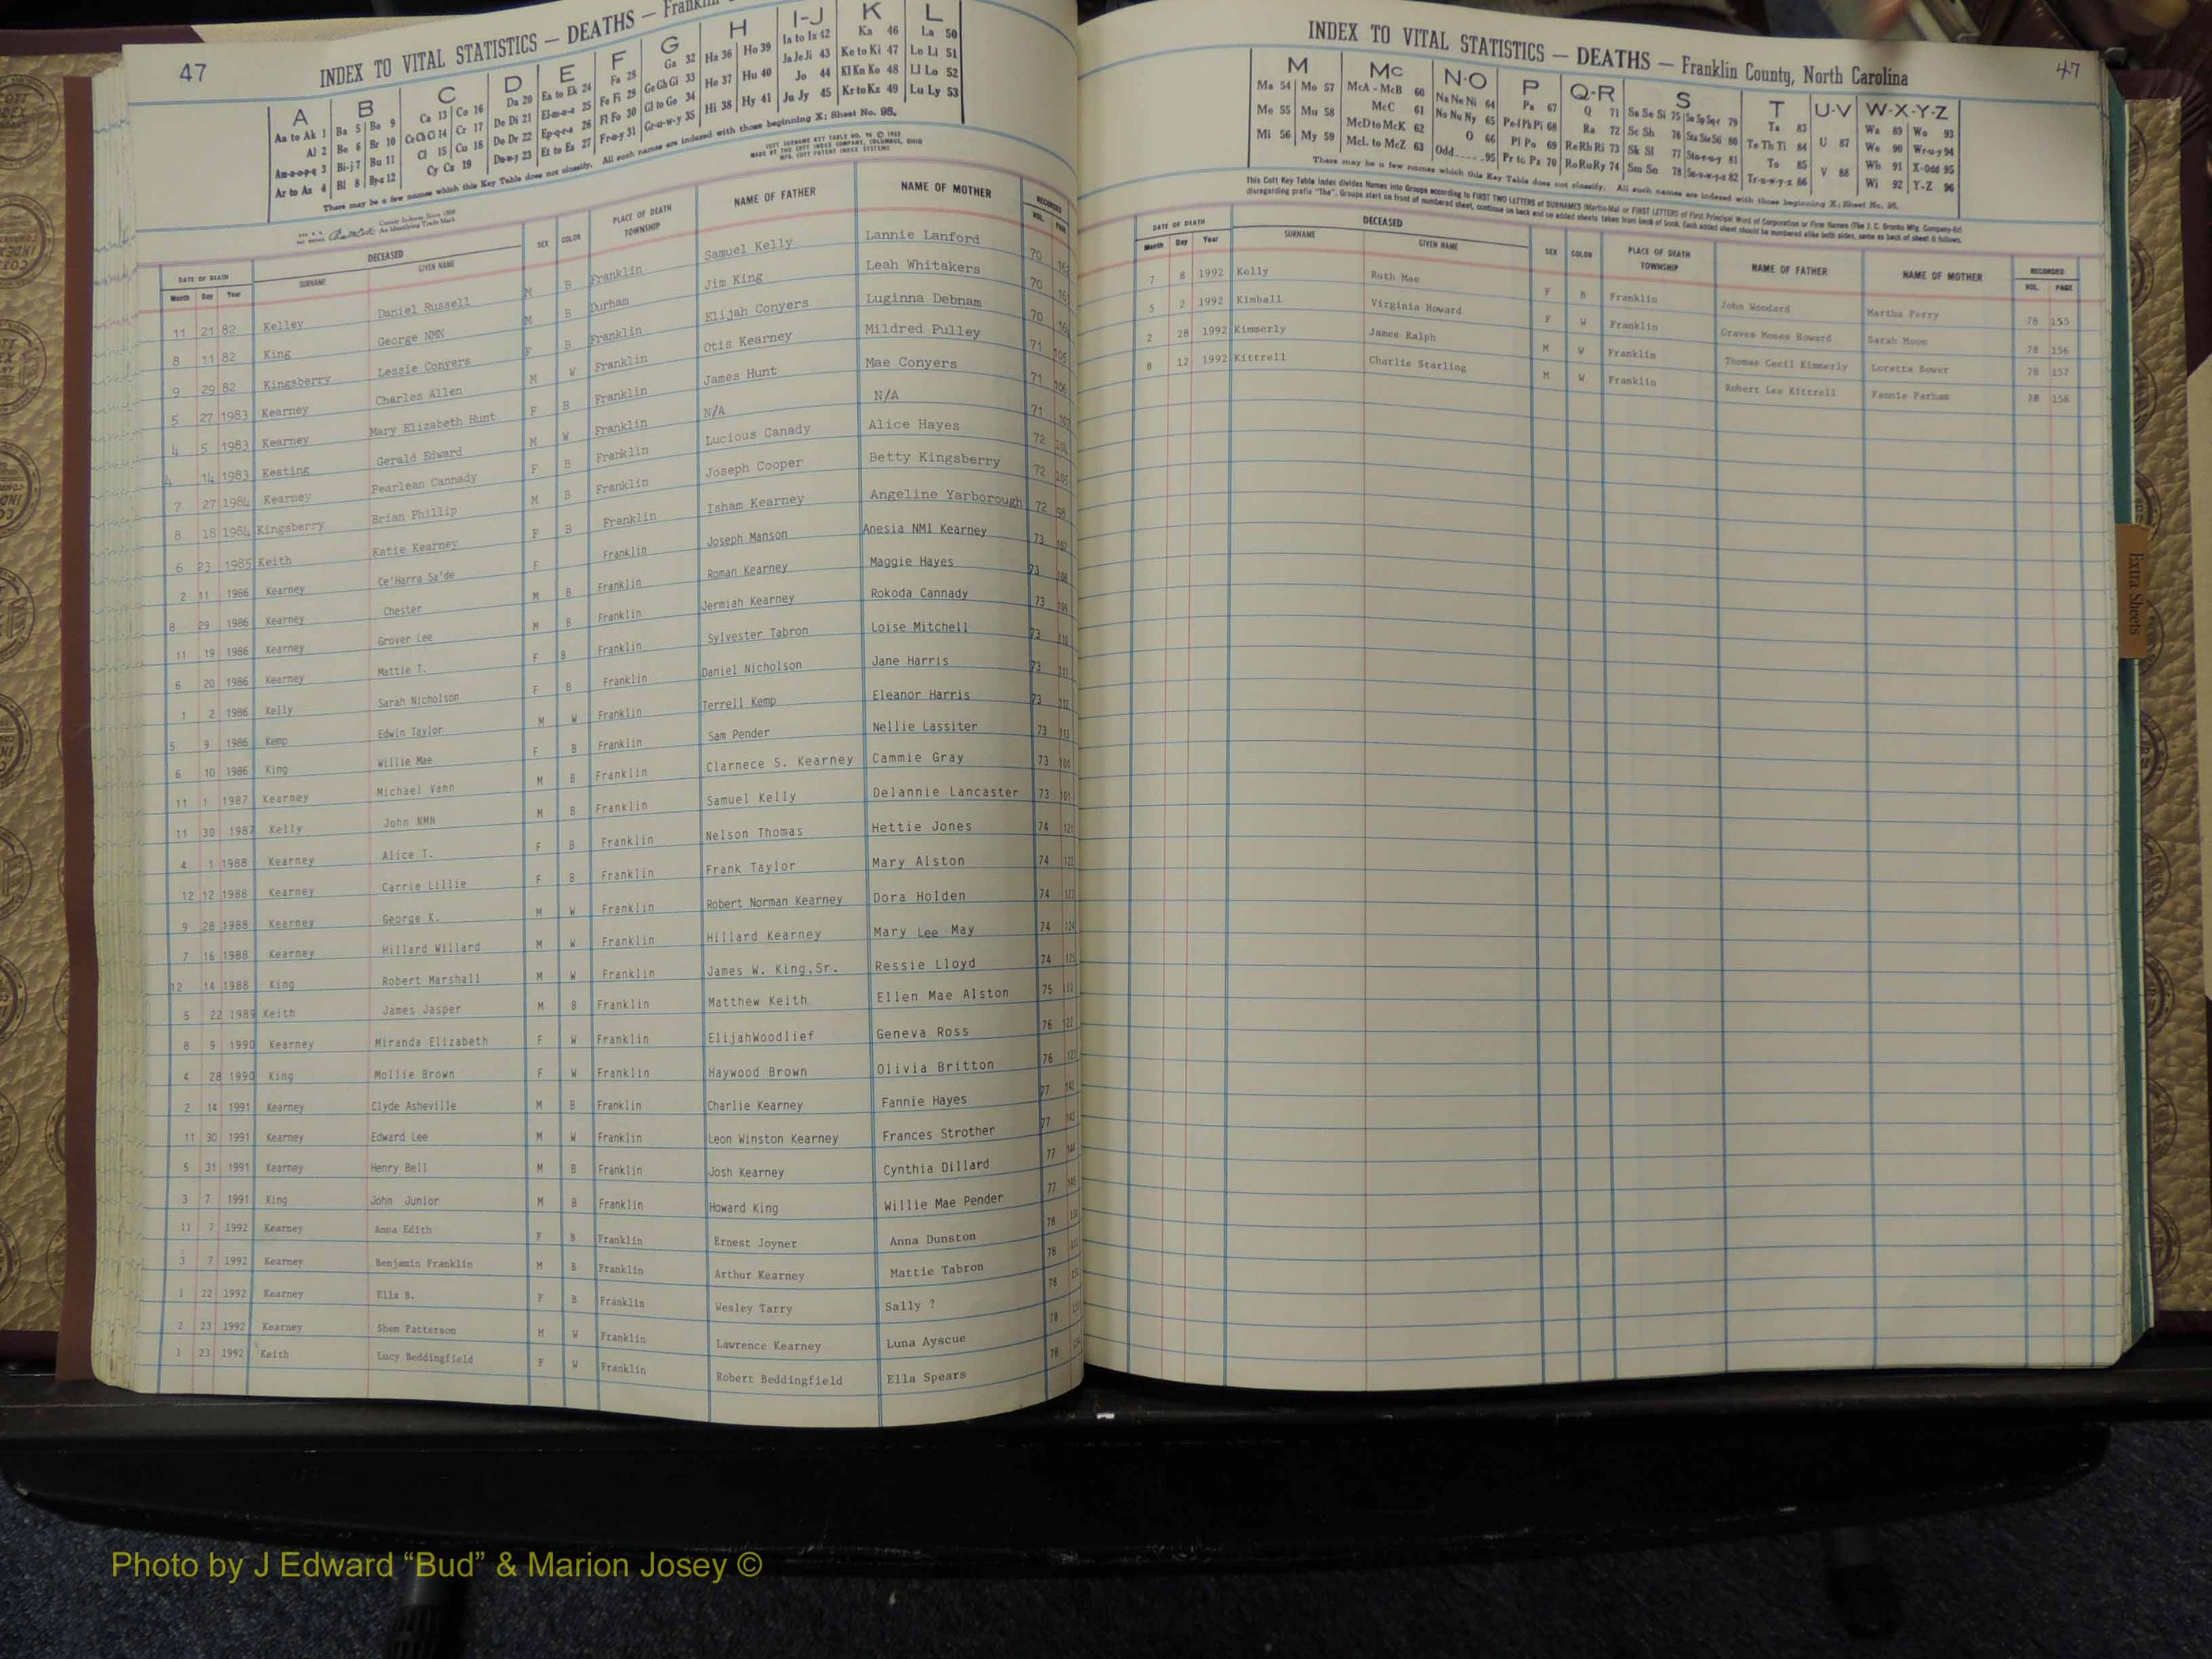 47
INDEX TO VITAL STATISTICS — DEATHS — Franklin
A B C D E F G H I-J K L
Aa to Ak 1 Ba 5 Bo 9 Ca 13 Co 16 Da 20 Ea to Ek 24 Fa 28 Ga 32 Ha 36 Ho 39 Ia to Iz 42 Ka 46 La 50
Al 2 Be 6 Br 10 Ce Ch Ci 14 Cr 17 De Di 21 El-m-n-o 25 Fe Fi 29 Ge Gh Gi 33 He 37 Hu 40 Ja Je Ji 43 Ke to Ki 47 Le Li 51
Am-n-o-p-q 3 Bi-j 7 Bu 11 Cl 15 Cu 18 Do Dr 22 Ep-q-r-s 26 Fl Fo 30 Gl to Go 34 Hi 38 Hy 41 Jo 44 Kl Kn Ko 48 Ll Lo 52
Ar to Az 4 Bl 8 By-z 12 Cy Cz 19 Du-w-y 23 Et to Ez 27 Fr-u-y 31 Gr-u-w-y 35 Ju Jy 45 Kr to Kz 49 Lu Ly 53
There may be a few names which this Key Table does not classify. All such names are indexed with those beginning X; Sheet No. 95.
COTT SURNAME KEY TABLE NO. 96 © 1953
MADE BY THE COTT INDEX COMPANY, COLUMBUS, OHIO
MFG. COTT PATENT INDEX SYSTEMS
County Indexes Since 1888
An Identifying Trade Mark
DATE OF DEATH DECEASED SEX COLOR PLACE OF DEATH TOWNSHIP NAME OF FATHER NAME OF MOTHER RECORDED
Month Day Year SURNAME GIVEN NAME VOL. PAGE
11 21 82 Kelley Daniel Russell M B Franklin Samuel Kelly Lannie Lanford 70
8 11 82 King George NMN M B Durham Jim King Leah Whitakers 70
9 29 82 Kingsberry Lessie Conyers F B Franklin Elijah Conyers Luginna Debnam 70
5 27 1983 Kearney Charles Allen M W Franklin Otis Kearney Mildred Pulley 71 105
4 5 1983 Kearney Mary Elizabeth Hunt F B Franklin James Hunt Mae Conyers 71 106
4 14 1983 Keating Gerald Edward M W Franklin N/A N/A 71 107
7 27 1984 Kearney Pearlean Cannady F B Franklin Lucious Canady Alice Hayes 72
8 18 1984 Kingsberry Brian Phillip M B Franklin Joseph Cooper Betty Kingsberry 72 105
6 23 1985 Keith Katie Kearney F B Franklin Isham Kearney Angeline Yarborough 72 98
2 11 1986 Kearney Ce'Harra Sa'de F Franklin Joseph Manson Anesia NMI Kearney 73 107
8 29 1986 Kearney Chester M B Franklin Roman Kearney Maggie Hayes 73 108
11 19 1986 Kearney Grover Lee M B Franklin Jermiah Kearney Rokoda Cannady 73 109
6 20 1986 Kearney Mattie T. F B Franklin Sylvester Tabron Loise Mitchell 73 110
1 2 1986 Kelly Sarah Nicholson F B Franklin Daniel Nicholson Jane Harris 73 111
5 9 1986 Kemp Edwin Taylor M W Franklin Terrell Kemp Eleanor Harris 73 112
6 10 1986 King Willie Mae F B Franklin Sam Pender Nellie Lassiter 73 113
11 1 1987 Kearney Michael Vann M B Franklin Clarnece S. Kearney Cammie Gray 73 100
11 30 1987 Kelly John NMN M B Franklin Samuel Kelly Delannie Lancaster 73 101
4 1 1988 Kearney Alice T. F B Franklin Nelson Thomas Hettie Jones 74 121
12 12 1988 Kearney Carrie Lillie F B Franklin Frank Taylor Mary Alston 74 122
9 28 1988 Kearney George K. M W Franklin Robert Norman Kearney Dora Holden 74 123
7 16 1988 Kearney Hillard Willard M W Franklin Hillard Kearney Mary Lee May 74 124
12 14 1988 King Robert Marshall M W Franklin James W. King,Sr. Ressie Lloyd 74 125
5 22 1989 Keith James Jasper M B Franklin Matthew Keith Ellen Mae Alston 75 110
8 9 1990 Kearney Miranda Elizabeth F W Franklin ElijahWoodlief Geneva Ross 76 122
4 28 1990 King Mollie Brown F W Franklin Haywood Brown Olivia Britton 76 123
2 14 1991 Kearney Clyde Asheville M B Franklin Charlie Kearney Fannie Hayes 77 142
11 30 1991 Kearney Edward Lee M W Franklin Leon Winston Kearney Frances Strother 77 143
5 31 1991 Kearney Henry Bell M B Franklin Josh Kearney Cynthia Dillard 77 144
3 7 1991 King John Junior M B Franklin Howard King Willie Mae Pender 77 145
11 7 1992 Kearney Anna Edith F B Franklin Ernest Joyner Anna Dunston 78 150
3 7 1992 Kearney Benjamin Franklin M B Franklin Arthur Kearney Mattie Tabron 78 151
1 22 1992 Kearney Ella B. F B Franklin Wesley Tarry Sally ? 78 152
2 23 1992 Kearney Shem Patterson M W Franklin Lawrence Kearney Luna Ayscue 78 153
1 23 1992 Keith Lucy Beddingfield F W Franklin Robert Beddingfield Ella Spears 78 154
INDEX TO VITAL STATISTICS — DEATHS — Franklin County, North Carolina
47
M Mc N-O P Q-R S T U-V W-X-Y-Z
Ma 54 Mo 57 McA - McB 60 Na Ne Ni 64 Pa 67 Q 71 Sa Se Si 75 So Sp Sq-r 79 Ta 83 U 87 Wa 89 Wo 93
Me 55 Mu 58 McC 61 No Nu Ny 65 Pe-f Ph Pi 68 Ra 72 Sc Sh 76 Sta Ste Sti 80 Te Th Ti 84 We 90 Wr-u-y 94
Mi 56 My 59 McD to McK 62 O 66 Pl Po 69 Re Rh Ri 73 Sk Sl 77 Sto-r-u-y 81 To 85 V 88 Wh 91 X-Odd 95
McL to McZ 63 Odd.....95 Pr to Pz 70 Ro Ru Ry 74 Sm Sn 78 Su-v-w-y-z 82 Tr-u-w-y-z 86 Wi 92 Y-Z 96
There may be a few names which this Key Table does not classify. All such names are indexed with those beginning X; Sheet No. 95.
This Cott Key Table Index divides Names into Groups according to FIRST TWO LETTERS of SURNAMES (Martin-Ma) or FIRST LETTERS of First Principal Word of Corporation or Firm Names (The J. C. Brooks Mfg. Company-Br)
disregarding prefix "The". Groups start on front of numbered sheet, continue on back and on added sheets taken from back of book. Each added sheet should be numbered alike both sides, same as back of sheet it follows.
DATE OF DEATH DECEASED SEX COLOR PLACE OF DEATH TOWNSHIP NAME OF FATHER NAME OF MOTHER RECORDED
Month Day Year SURNAME GIVEN NAME VOL. PAGE
7 8 1992 Kelly Ruth Mae F B Franklin John Woodard Martha Perry 78 155
5 2 1992 Kimball Virginia Howard F W Franklin Graves Moses Howard Sarah Moon 78 156
2 28 1992 Kimmerly James Ralph M W Franklin Thomas Cecil Kimmerly Loretta Bower 78 157
8 12 1992 Kittrell Charlie Starling M W Franklin Robert Lee Kittrell Fannie Parham 78 158
Extra Sheets
Photo by J Edward “Bud” & Marion Josey ©